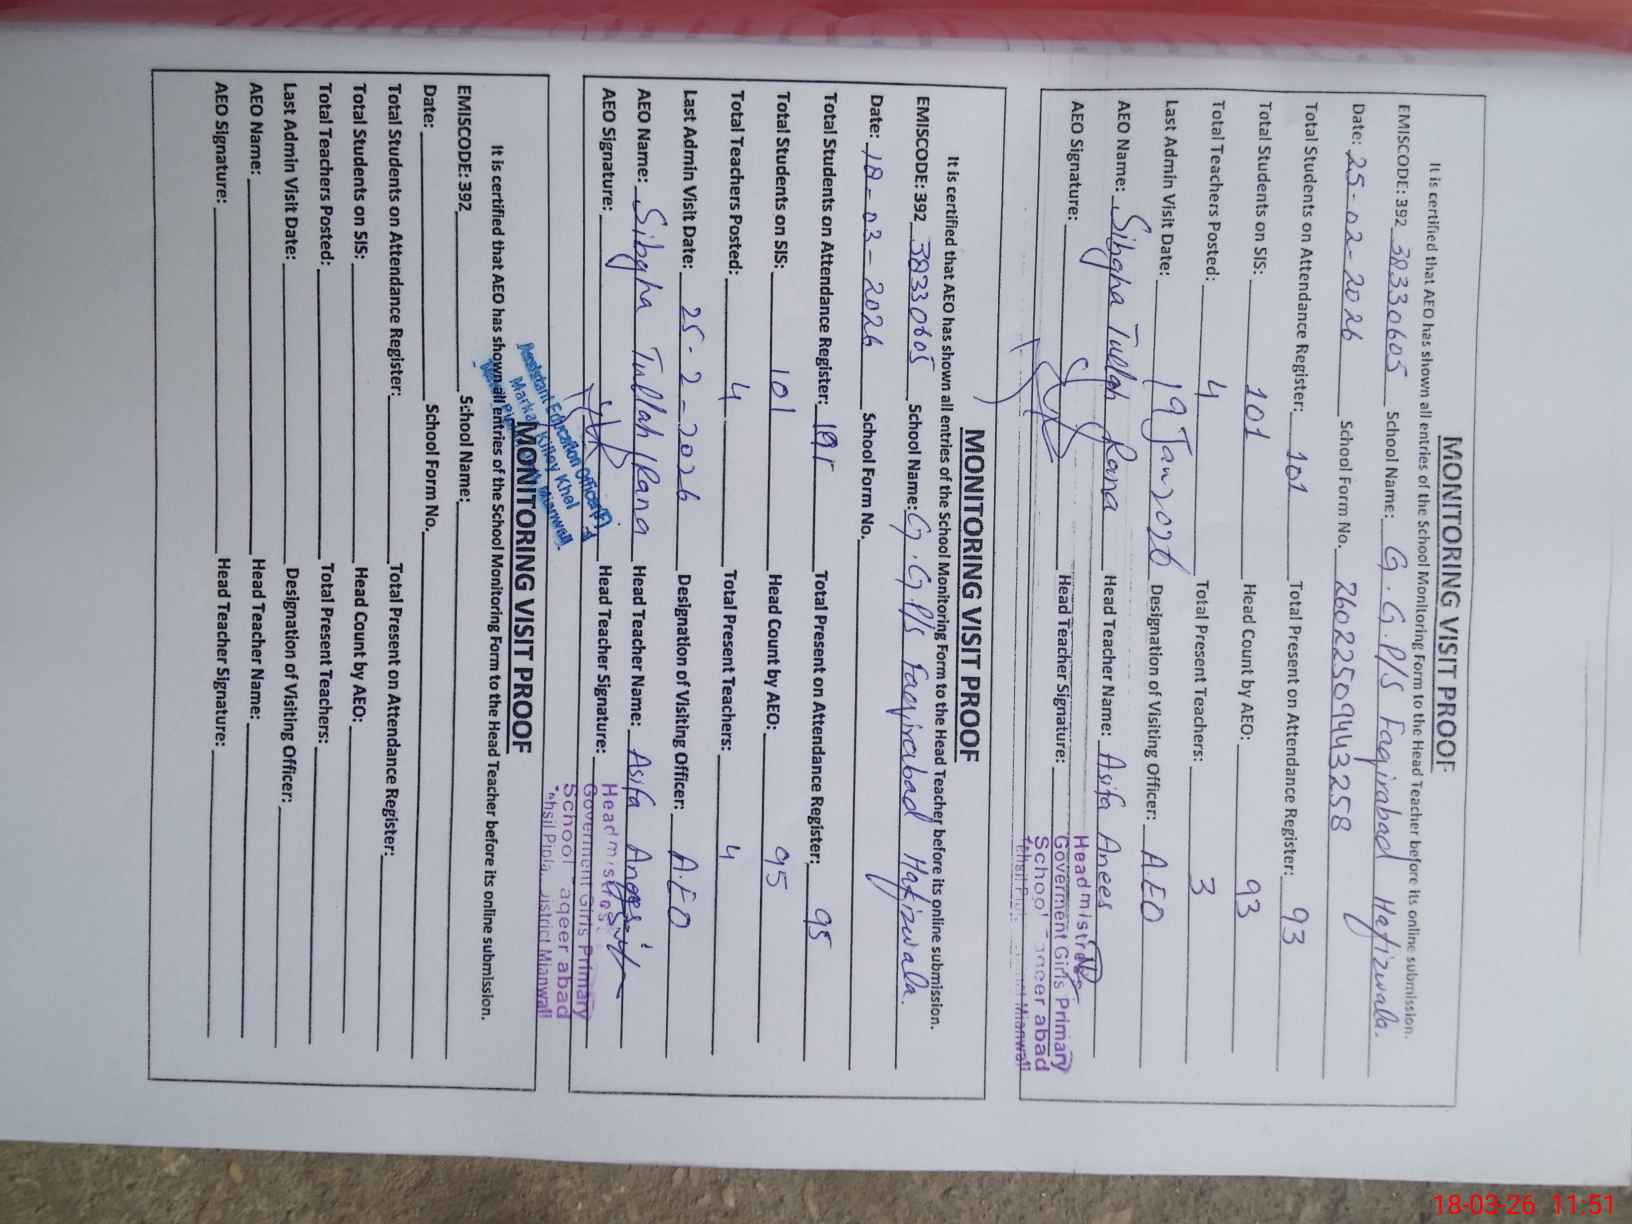 MONITORING VISIT PROOF
It is certified that AEO has shown all entries of the School Monitoring Form to the Head Teacher before its online submission.
EMISCODE: 392 38330605 School Name: G.G.P/S Faqirabad Hafizwala.
Date: 25-02-2026 School Form No. 2602250944 3258
Total Students on Attendance Register: 101 Total Present on Attendance Register: 93
Total Students on SIS: 101 Head Count by AEO: 93
Total Teachers Posted: 4 Total Present Teachers: 3
Last Admin Visit Date: 19 Jan 2026 Designation of Visiting Officer: A.EO
AEO Name: Sibgha Tullah Rana Head Teacher Name: Asifa Anees
AEO Signature: Head Teacher Signature:
Headmistress
Goverment Girls Primary
School Faqeer abad
Tehsil Mianwali
MONITORING VISIT PROOF
It is certified that AEO has shown all entries of the School Monitoring Form to the Head Teacher before its online submission.
EMISCODE: 392 38330605 School Name: G.G.P/S Faqirabad Hafizwala.
Date: 18-03-2026 School Form No.
Total Students on Attendance Register: Total Present on Attendance Register: 95
Total Students on SIS: 101 Head Count by AEO: 95
Total Teachers Posted: 4 Total Present Teachers: 4
Last Admin Visit Date: 25-2-2026 Designation of Visiting Officer: A.EO
AEO Name: Sibgha Tullah Rana Head Teacher Name: Asifa Anees
AEO Signature: Head Teacher Signature:
Headmistress
Goverment Girls Primary
School Faqeer abad
Tehsil Piplan District Mianwali
Assistant Education Officer(F)
Markaz Killey Khel
Mianwali
MONITORING VISIT PROOF
It is certified that AEO has shown all entries of the School Monitoring Form to the Head Teacher before its online submission.
EMISCODE: 392 School Name:
Date: School Form No.
Total Students on Attendance Register: Total Present on Attendance Register:
Total Students on SIS: Head Count by AEO:
Total Teachers Posted: Total Present Teachers:
Last Admin Visit Date: Designation of Visiting Officer:
AEO Name: Head Teacher Name:
AEO Signature: Head Teacher Signature:
18-03-26 11:51